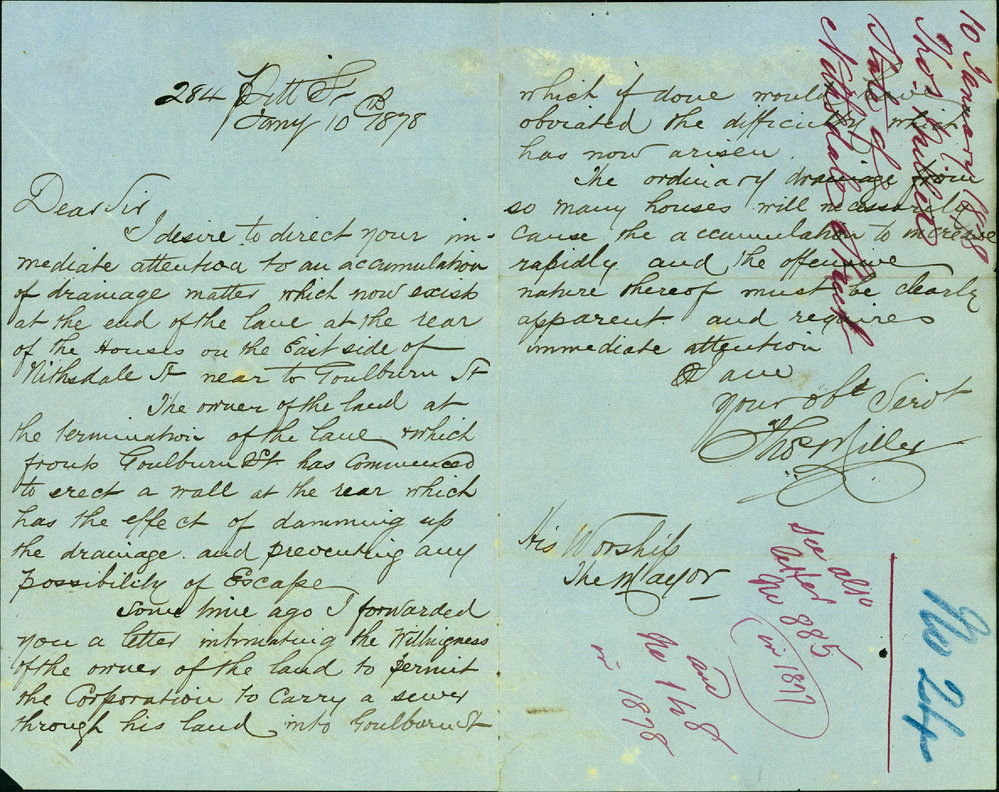 284 Pitt St
Jany 10th 1878
Dear Sir
I desire to direct your im-
mediate attention to an accumulation
of drainage matter which now exists
at the end of the lane at the rear
of the Houses on the East side of
Nithsdale St near to Goulburn St
The owner of the land at
the termination of the lane & which
fronts Goulburn St has commenced
to erect a wall at the rear which
has the effect of damming up
the drainage and preventing any
possibility of Escape
Some time ago I forwarded
you a letter intimating the Willingness
of the owner of the land to permit
the Corporation to carry a sewer
through his land into Goulburn St
which if done would have
obviated the difficulty which
has now arisen.
The ordinary drainage from
so many houses will necessarily
cause the accumulation to increase
rapidly and the offensive
nature thereof must be clearly
apparent and requires
immediate attention
I am
Your obt Servt
Thos Miller
His Worship
The Mayor
10 January 1878
Thos Miller
State of
Nithsdale Street
See also
letter
No 885
in 1877
and
No 148
in 1878
No 24